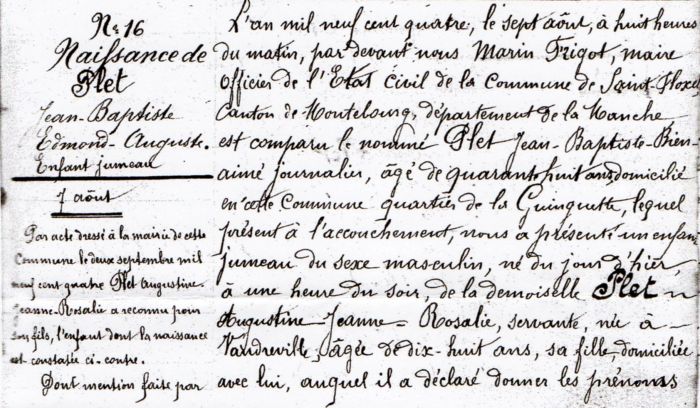 N° 16
Naissance de
Plet
Jean-Baptiste
Edmond-Auguste.
Enfant jumeau
7 août
Par acte dressé à la mairie de cette
Commune le deux septembre mil
neuf cent quatre Plet Augustine
Jeanne-Rosalie a reconnu pour
son fils, l'enfant dont la naissance
est constatée ci-contre.
Dont mention faite par
L'an mil neuf cent quatre, le sept août, à huit heures
du matin, par devant nous Marin Frigot, maire
Officier de l'Etat Civil de la Commune de Saint-Floxel
Canton de Montebourg, département de la Manche
est comparu le nommé Plet Jean-Baptiste-Bien-
aimé journalier, âgé de quarante huit ans, domicilié
en cette Commune quartier de la Guinguette, lequel
présent à l'accouchement, nous a présenté un enfant
jumeau du sexe masculin, né du jour d'hier,
à une heure du soir, de la demoiselle Plet
Augustine-Jeanne-Rosalie, servante, née à
Vaudreville, âgée de dix-huit ans, sa fille, domiciliée
avec lui, auquel il a déclaré donner les prénoms